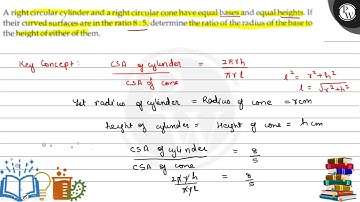 A right circular cylinder and a right circular cone have equal bases and equal heights. If
their curved surfaces are in the ratio 8 : 5, determine the ratio of the radius of the base to
the height of either of them.
Key Concept: CSA of cylinder / CSA of cone = 2πrh / πrl
l² = r²+h²
l = √r²+h²
Let radius of cylinder = Radius of cone = rcm
height of cylinder = Height of cone = h cm
CSA of cylinder / CSA of cone = 8/5
2πrh / πrl = 8/5